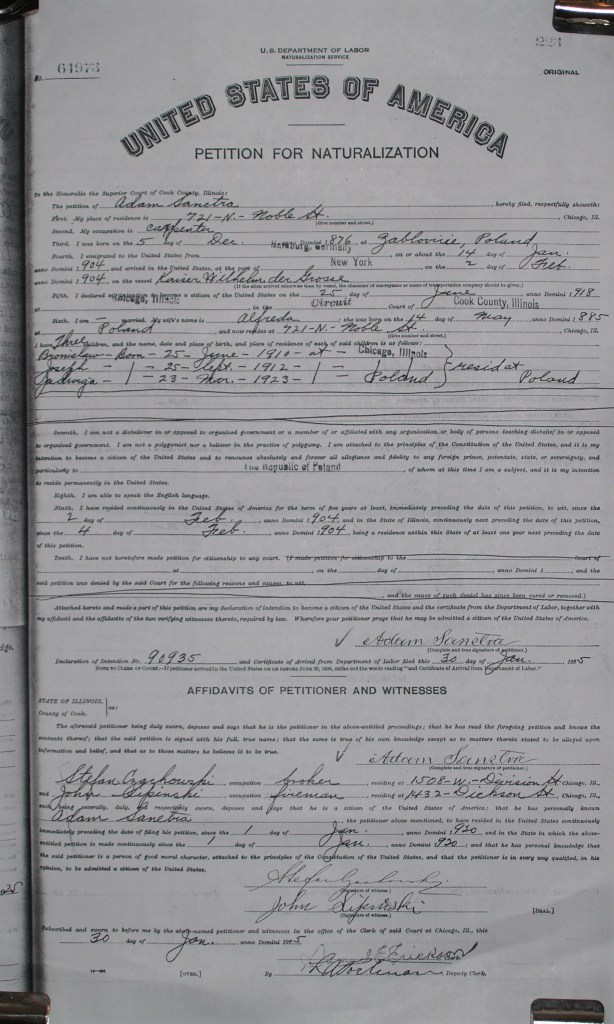 U. S. DEPARTMENT OF LABOR
NATURALIZATION SERVICE
No. 64973
223
ORIGINAL
UNITED STATES OF AMERICA
PETITION FOR NATURALIZATION
To the Honorable the Superior Court of Cook County, Illinois:
The petition of Adam Sanetra, hereby filed, respectfully showeth:
First. My place of residence is 721-N.- Noble St. Chicago, Ill.
(Give number and street.)
Second. My occupation is carpenter
Third. I was born on the 5 day of Dec. anno Domini 1 876, at Poland
Fourth. I emigrated to the United States from Hamburg, Germany, on or about the 14 day of Jan.
anno Domini 1 904, and arrived in the United States, at the port of New York, on the 2 day of Feb.
anno Domini 1 904, on the vessel Kaiser Wilhelm der Grosse
(If the alien arrived otherwise than by vessel, the character of conveyance or name of transportation company should be given.)
Fifth. I declared my intention to become a citizen of the United States on the 25 day of June anno Domini 1 918
at Chicago, Illinois, in the Circuit Court of Cook County, Illinois
Sixth. I am - married. My wife's name is Alfreda; she was born on the 14 day of May, anno Domini 1 885
at Poland, and now resides at 721-N.-Noble St. Chicago, Ill.
I have Three children, and the name, date and place of birth, and place of residence of each of said children is as follows:
Bronislaw - Born - 25 - June - 1910 - at - Chicago, Illinois
Joseph - 25 - Sept. - 1912 - resid at
Jadwiga - 23 - Mar. - 1923 - Poland Poland
Seventh. I am not a disbeliever in or opposed to organized government or a member of or affiliated with any organization or body of persons teaching disbelief in or opposed
to organized government. I am not a polygamist nor a believer in the practice of polygamy. I am attached to the principles of the Constitution of the United States, and it is my
intention to become a citizen of the United States and to renounce absolutely and forever all allegiance and fidelity to any foreign prince, potentate, state, or sovereignty, and
particularly to The Republic of Poland of whom at this time I am a subject, and it is my intention
to reside permanently in the United States.
Eighth. I am able to speak the English language.
Ninth. I have resided continuously in the United States of America for the term of five years at least, immediately preceding the date of this petition, to wit, since the
2 day of Feb., anno Domini 1 904, and in the State of Illinois, continuously next preceding the date of this petition,
since the 4 day of Feb. anno Domini 1 904, being a residence within this State of at least one year next preceding the date
of this petition.
Tenth. I have not heretofore made petition for citizenship to any court. (I made petition for citizenship to the Court of
at, on the day of, anno Domini 1 and the
said petition was denied by the said Court for the following reasons and causes, to wit,
, and the cause of such denial has since been cured or removed.)
Attached hereto and made a part of this petition are my declaration of intention to become a citizen of the United States and the certificate from the Department of Labor, together with
my affidavit and the affidavits of the two verifying witnesses thereto, required by law. Wherefore your petitioner prays that he may be admitted a citizen of the United States of America.
Adam Sanetra
(Complete and true signature of petitioner.)
Declaration of Intention No. 90935 and Certificate of Arrival from Department of Labor filed this 30 day of Jan., 192 5
NOTE TO CLERK OF COURT.—If petitioner arrived in the United States ON OR BEFORE JUNE 29, 1906, strike out the words reading "and Certificate of Arrival from Department of Labor."
AFFIDAVITS OF PETITIONER AND WITNESSES
STATE OF ILLINOIS,
County of Cook, ss:
The aforesaid petitioner being duly sworn, deposes and says that he is the petitioner in the above-entitled proceedings; that he has read the foregoing petition and knows the
contents thereof; that the said petition is signed with his full, true name; that the same is true of his own knowledge except as to matters therein stated to be alleged upon
information and belief, and that as to those matters he believes it to be true.
Adam Sanetra
(Complete and true signature of petitioner.)
Stefan, occupation broker, residing at 1508-W.-Division St. Chicago, Ill.
and John Lipinski, occupation fireman, residing at 1432-Dickson St. Chicago, Ill.
each being severally, duly, and respectively sworn, deposes and says that he is a citizen of the United States of America; that he has personally known
Adam Sanetra, the petitioner above mentioned, to have resided in the United States continuously
immediately preceding the date of filing his petition, since the 1 day of Jan., anno Domini 1 920, and in the State in which the above-
entitled petition is made continuously since the 1 day of Jan., anno Domini 1 920; and that he has personal knowledge that
the said petitioner is a person of good moral character, attached to the principles of the Constitution of the United States, and that the petitioner is in every way qualified, in his
opinion, to be admitted a citizen of the United States.
Stefan
(Signature of witness.)
John Lipinski
(Signature of witness.)
[SEAL.]
Subscribed and sworn to before me by the above-named petitioner and witnesses in the office of the Clerk of said Court at Chicago, Ill., this
30 day of Jan., anno Domini 192 5
Erickson
[OVER.] By, Deputy Clerk.